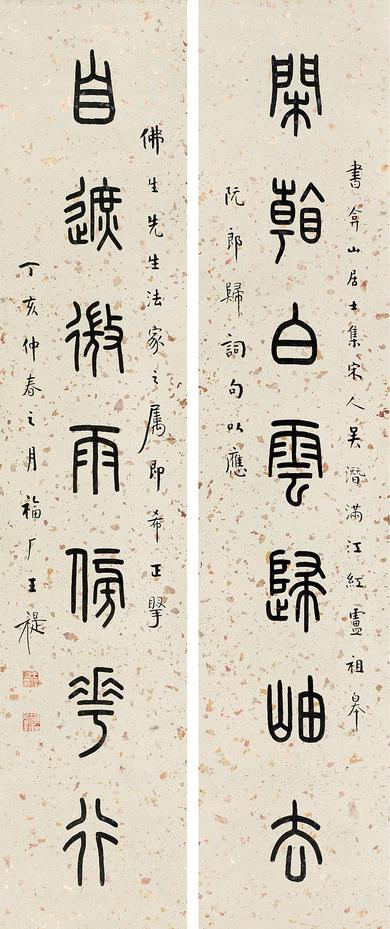 閑看白雲歸岫去
自遮微雨傍花行
書弇山居士集宋人吳潛滿江紅盧祖皋
阮郎歸詞句以應
佛生先生法家之属即希正擥
丁亥仲春之月福厂王禔